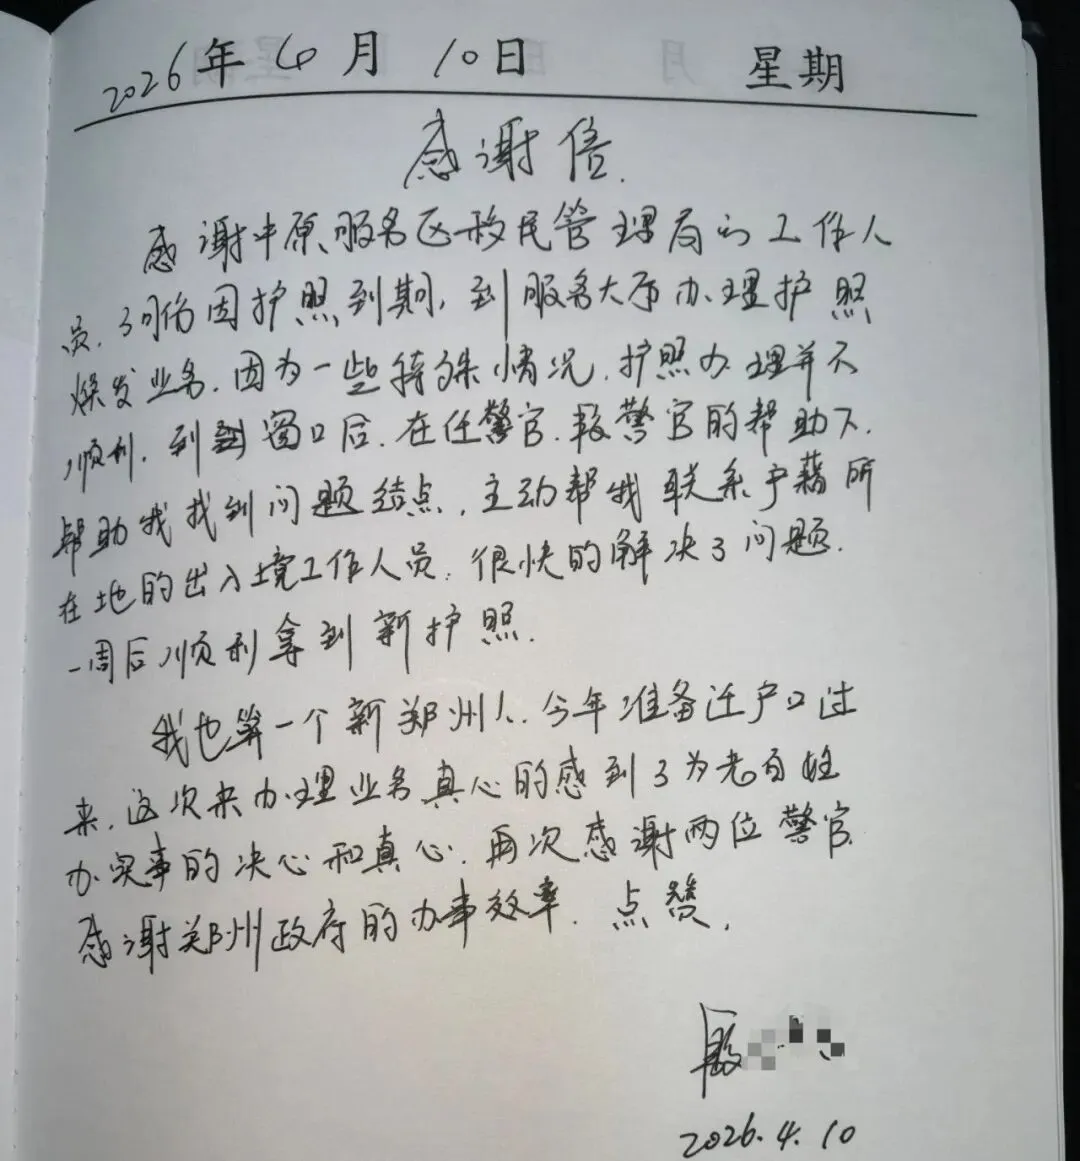 2026年4月10日 星期
感谢信.
感谢中原服务区移民管理局的工作人
员.3月份因护照到期,到服务大厅办理护照
换发业务.因为一些特殊情况.护照办理并不
顺利.到到窗口后.在任警官.段警官的帮助下.
帮助我找到问题结点.主动帮我联系户籍所
在地的出入境工作人员.很快的解决了问题.
一周后顺利拿到新护照.
我也算一个新郑州人.今年准备迁户口过
来.这次来办理业务真心的感到了为老百姓
办实事的决心和真心.再次感谢两位警官
感谢郑州政府的办事效率.点赞.
2026.4.10